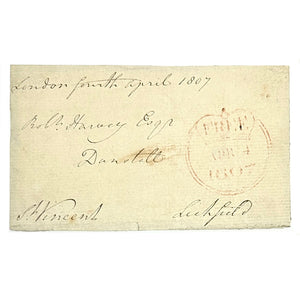 London fourth April 1807
Robt. Harvey Esqr
Dunstall
FREE
APR 4
1807
St Vincent
Lichfield